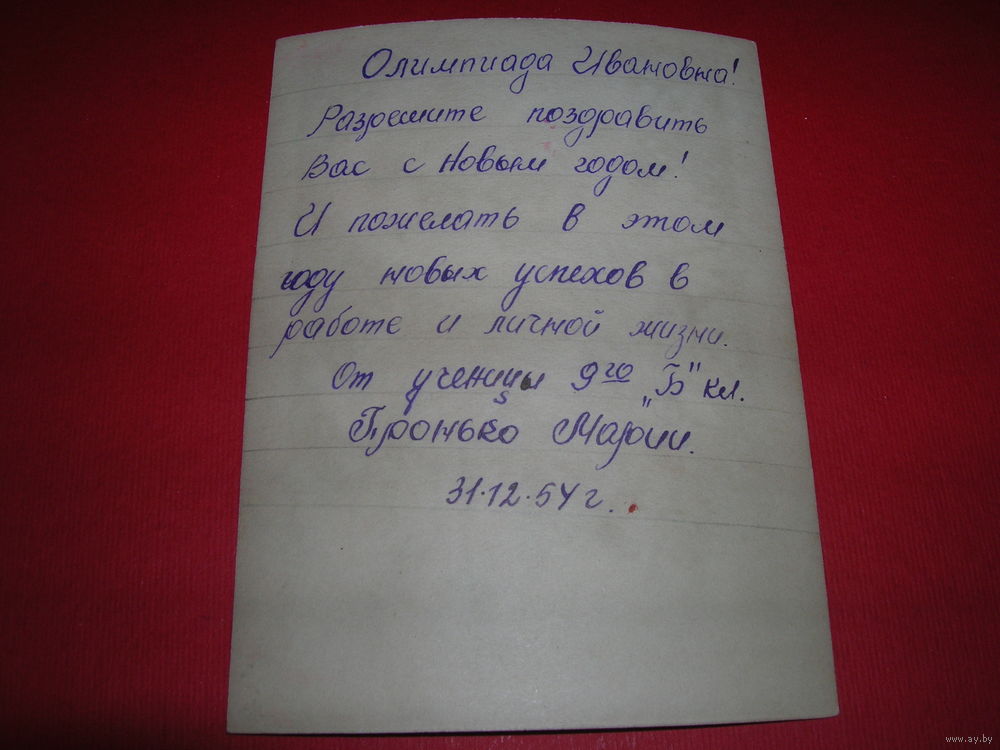 Олимпиада Ивановна!
Разрешите поздравить
Вас с Новым годом!
И пожелать в этом
году новых успехов в
работе и личной жизни.
От ученицы 9го „Б" кл.
Пронько Марии.
31.12.54 г.
www.ay.by